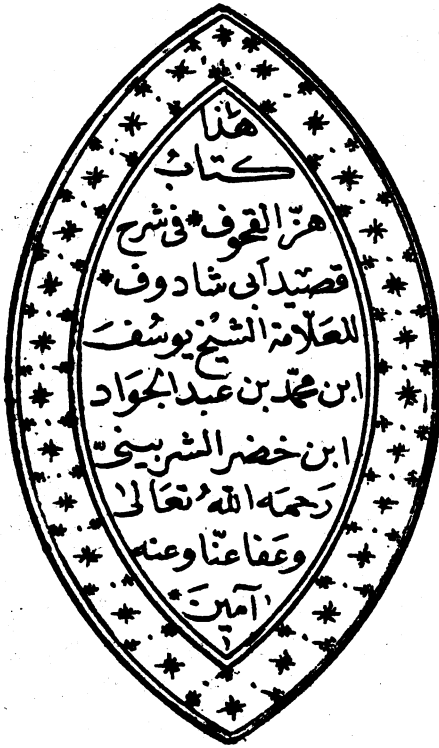 هٰذا
كتابُ
هزّ القحوف * فى شرح
قصيد أبى شادوف *
للعلّامة الشيخ يوسُفَ
ابن محمّد بن عبد الجوَاد
ابن خضر الشربينىّ
رَحمَه اللهُ تعَالىٰ
وعَفا عنّا وعنه
آمينَ